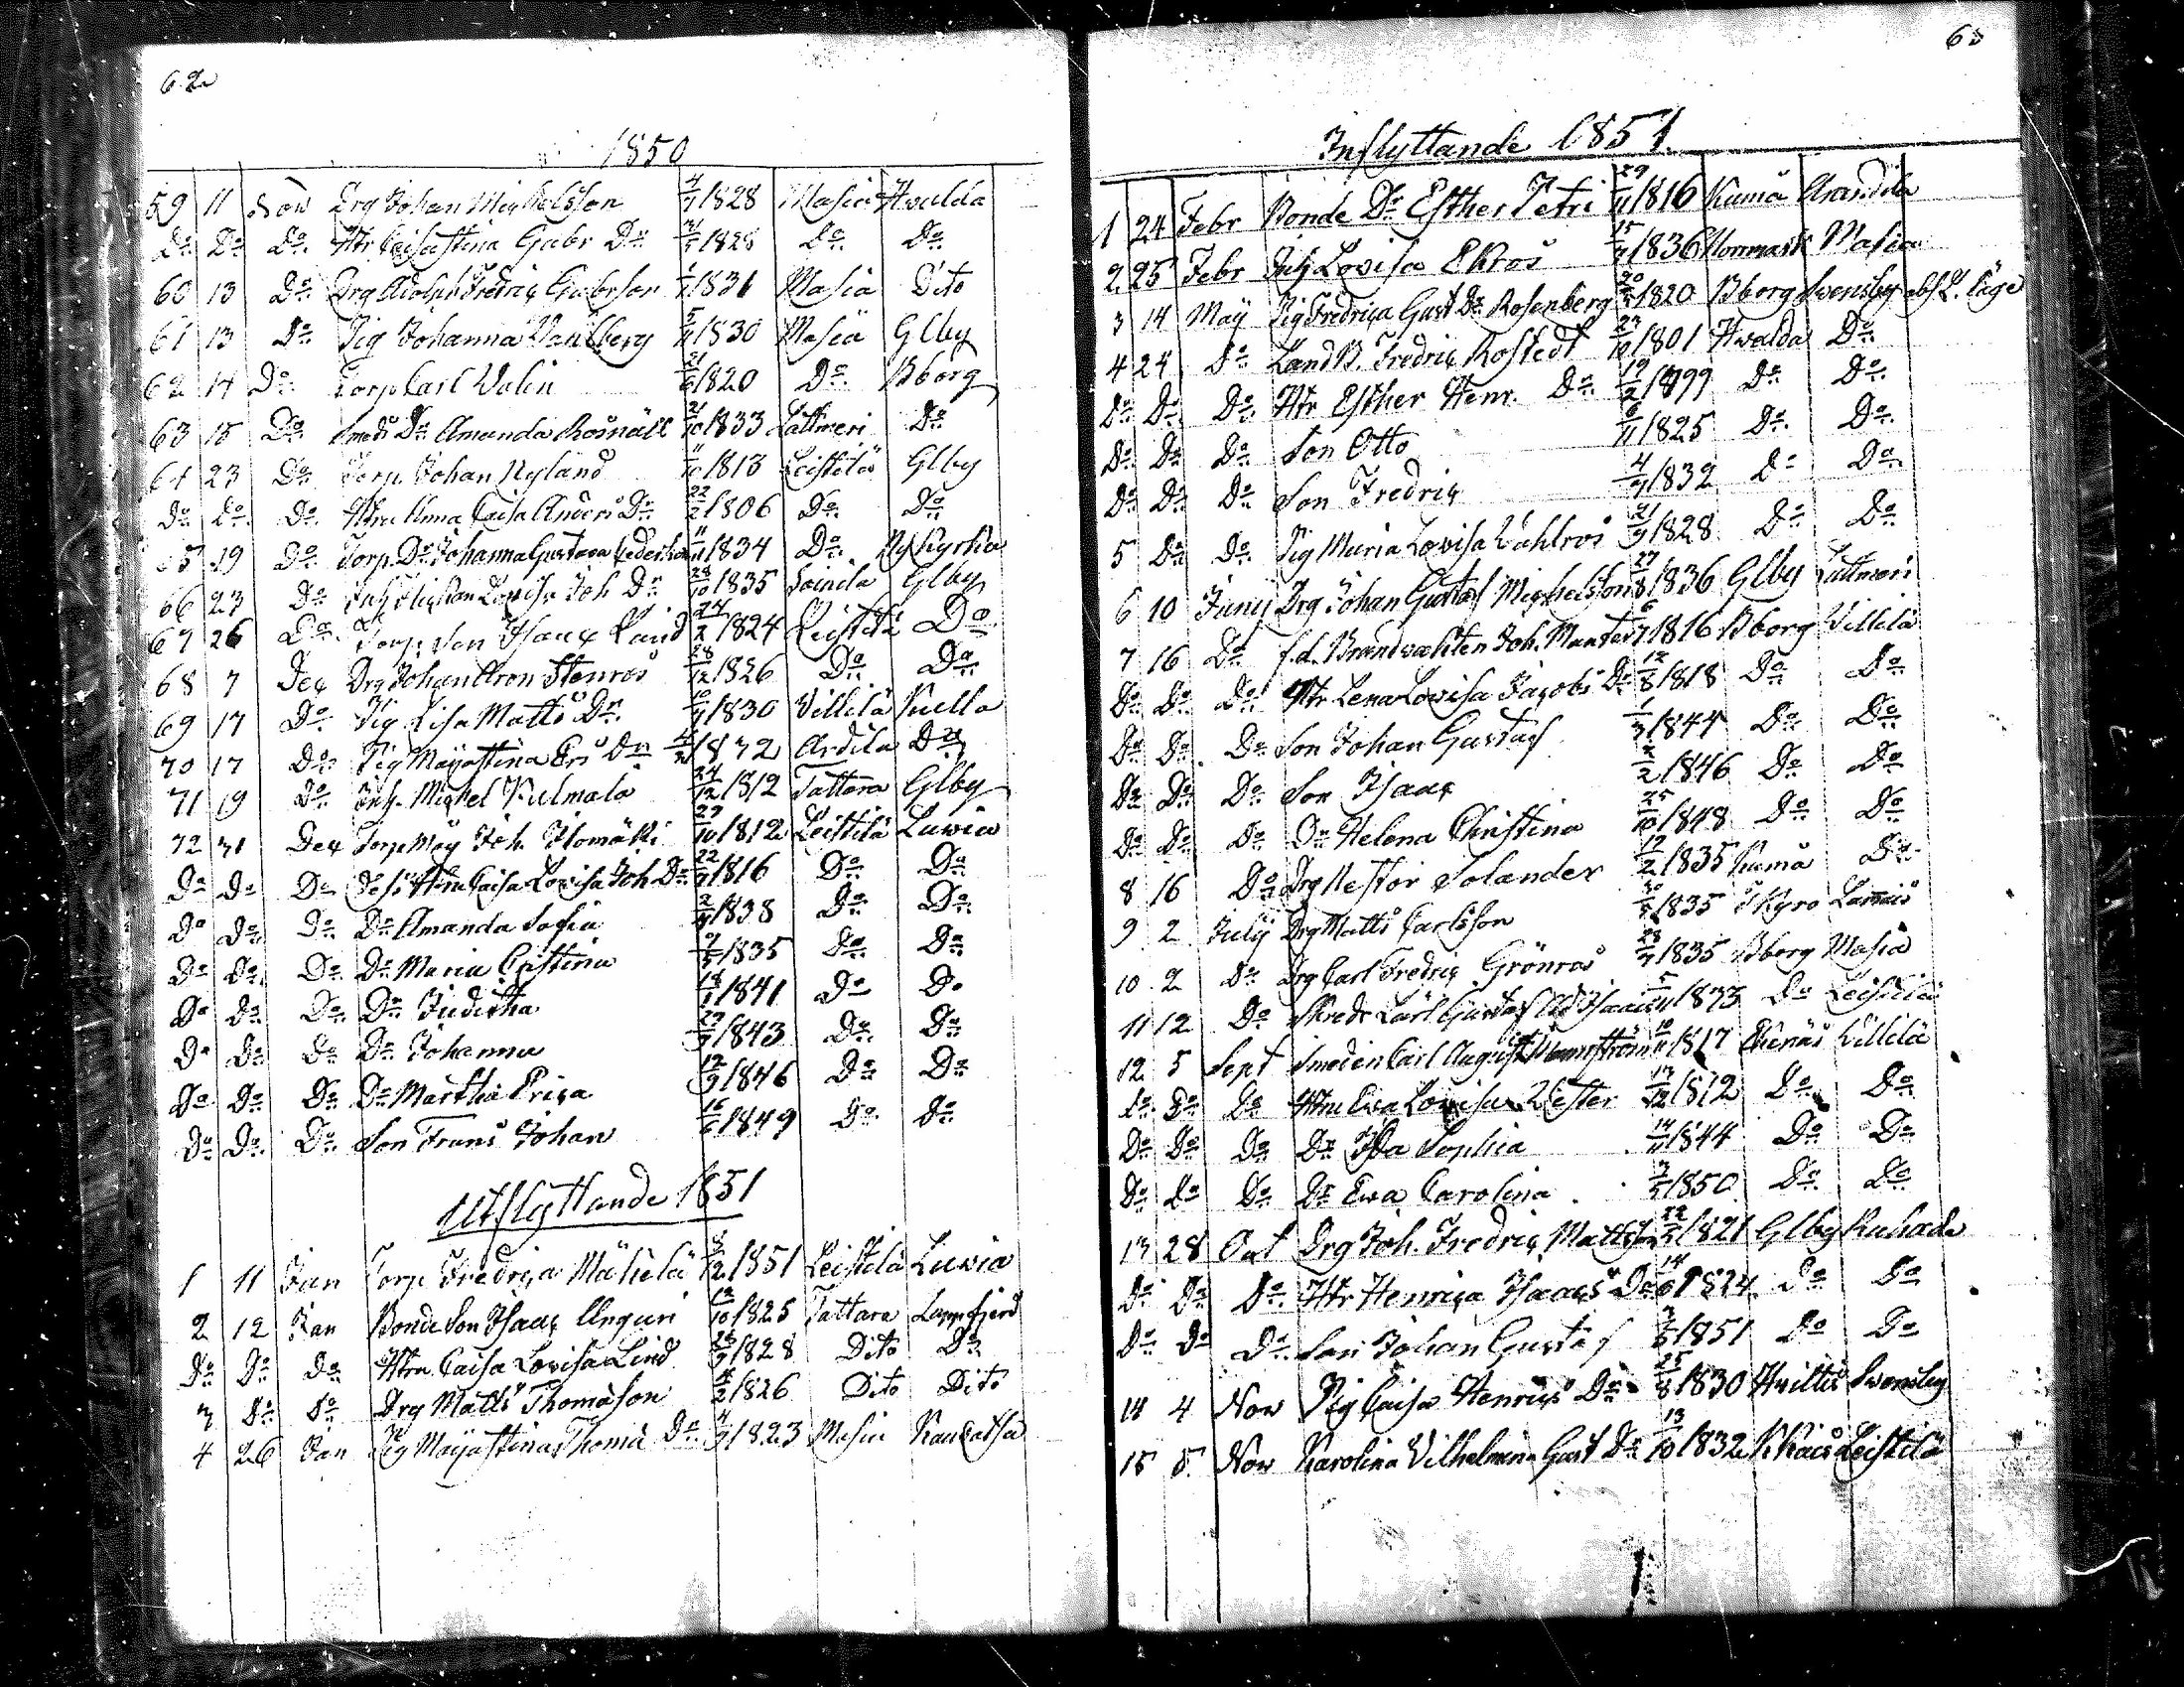 62
1850
59 11 Nov Drg Johan Michelsson 4/7 1828 Masia Hvalda
Do Do Do Htr Caisastina Gabr Dr 1828 Do Do
60 13 Do Drg Adolph Fredric Gabrson 1831 Masia Dito
61 13 Do Pig Johanna Dahlberg 5/11 1830 Masiä Glby
62 14 Do Torp Carl Valin 21/6 1820 Do Bborg
63 18 Do Smeds Dr Amanda Rosnäll 21/10 1833 Lattmeri Do
64 23 Do Torp. Johan Nyland 11/10 1813 Leistilä Glby
Do Do Do Htru Anna Caisa Anders Dr 22/2 1806 Do Do
65 19 Do Torp. Dr Johanna Gustava 11/11 1834 Do Nykyrka
66 23 Do Inh Flickan Lovisa Joh Dr 28/10 1835 Soinila Glby
67 26 Do Torp. Son Isaac Lund 24/2 1824 Leistilä Do
68 7 Dec Drg Johan Stenros 28/12 1826 Do Do
69 17 Do Pig Lisa Matts Dr 10/9 1830 Villilä Kiella
70 17 Do Pig Majastina Ers Dr 1832 Ardila Do
71 19 Do Inh. Michel Kulmala 24/12 1812 Tattara Glby
72 31 Dec Torp Måg Joh. Isomäki 29/10 1812 Leistilä Luvia
Do Do Do Dess Htru Caisa Lovisa Joh Dr 22/9 1816 Do Do
Do Do Do Dr Amanda Sofia 1838 Do Do
Do Do Do Dr Maria Cristina 1835 Do Do
Do Do Do Dr Juditha 1841 Do Do
Do Do Do Dr Johanna 1843 Do Do
Do Do Do Dr Martha Erica 12/9 1846 Do Do
Do Do Do Son Frans Johan 16/6 1849 Do Do
Utflyttande 1851
1 11 Jan Torp Fredrica Mäkelä 8/12 1851 Leistilä Luvia
2 12 Jan Bonde Son Isaac Unguri 13/10 1825 Tattara Lappfjerd
Do Do Do Htru Caisa Lovisa Lind 1828 Dito Do
3 Do Do Drg Matts Thomasson 1826 Dito Dito
4 26 Jan Pig Majastina Thoma Dr 4/9 1823 Masia Kaukatsa
63
Inflyttande 1851.
1 24 Febr Bonde Dr Esther Petri 29/11 1816 Kumå
2 25 Febr Inh Lovisa Ekros 1836 Norrmark Masia
3 14 May Pig Fredrica Gust Dr Rosenberg 1820 Bborg Svensby
4 24 Do LandB. Fredric Rostedt 23/10 1801 Hvalda Do
Do Do Do Htr Esther Henr. Dr 19/2 1799 Do Do
Do Do Do Son Otto 6/11 1825 Do Do
Do Do Do Son Fredric 4/7 1832 Do Do
5 Do Do Pig Maria Lovisa Vahlros 21/9 1828 Do Do
6 10 Junij Drg Johan Gustaf Michelsson 27/8 1836 Glby Lattmeri
7 16 Do f.d. Brandvakten Joh. 1816 Bborg Villilä
Do Do Do Htr Lena Lovisa Jacobs Dr 12/8 1818 Do Do
Do Do Do Son Johan Gustaf 1/3 1844 Do Do
Do Do Do Son Isaac 1846 Do Do
Do Do Do Dr Helena Christina 25/10 1848 Do Do
8 16 Do Drg Nestor Solander 19/2 1835 Kumå Do
9 2 July Drg Matts Carlsson 1835 Lammais
10 2 Do Drg Carl Fredric Grönros 28/7 1835 Bborg Masia
11 12 Do Carl Gustaf Do Leistilä
12 5 Sept Smeden Carl August 10/11 1817 Ekenäs Villilä
Do Do Do Htru Eva Lovisa Vester 13/12 1812 Do Do
Do Do Do Dr Ida Sophia 14/11 1844 Do Do
Do Do Do Dr Eva Carolina 1850 Do Do
13 28 Oct Drg Joh. Fredric Mattsson 1821 Glby Ruhade
Do Do Do Htr Henrica Isaacs Dr 14/6 1824 Do Do
Do Do Do Son Johan Gustaf 1851 Do Do
14 4 Nov Pig Caisa Henrics Dr 25/8 1830 Hvittis Svensby
15 8 Nov Karolina Vilhelmina Gust Dr 13/10 1832 Leistilä